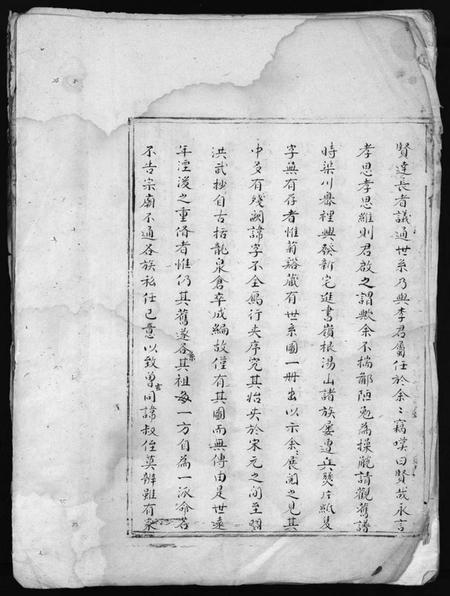 賢達長者議通世系乃與李君屬任於余〻藕嘆曰賢哉永言
孝思孝思維則君啟之謂歟余不揣鄙陋勉為操觚請觀舊譜
時梁川黎裡興發新宅進書嶺根湯山諸族屡遭兵燹片紙隻
字無有存者惟菊谿藏有世系圖一冊出以示余展閱之見其
中多有殘闕諱字不全鴈行失序究其始失於宋元之间至明
洪武抄自古括龍泉倉卒成編故僅有其圖而無傳由是世遠
年湮後之重脩者惟仍其舊遂各其祖系敘一方自為一派俞若
不告宗廟不通各族私任己意以致曾玄同諱叔侄莫辨雖有家